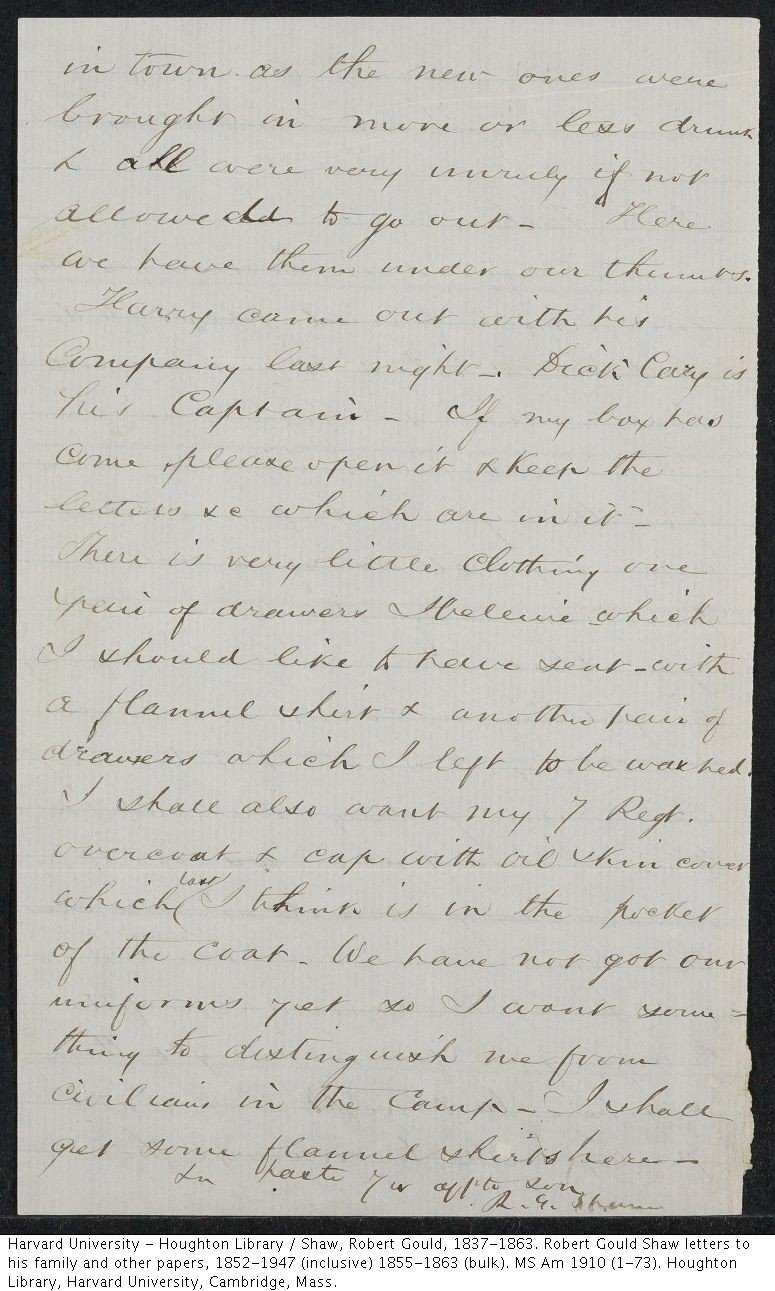 in town as the new ones were
brought in more or less drunk
& all were very unruly if not
allowed to go out – Here
we have them under our thumbs.
Harry came out with his
Company last night –. Dick Cary is
his Captain – If my box has
come, please open it & keep the
letters &c which are in it –
There is very little clothing one
pair of drawers I believe which
I should like to have sent – with
a flannel shirt & another pair of
drawers which I left to be washed.
I shall also want my 7 Regt.
overcoat & cap with oil skin cover
which (last I think is in the pocket
of the coat – We have not got our
uniforms yet so I want some=
thing to distinguish me from
civilians in the Camp – I shall
get some flannel shirts here –
In haste Yr aff'te son
R. G. Shaw
Harvard University - Houghton Library / Shaw, Robert Gould, 1837-1863. Robert Gould Shaw letters to
his family and other papers, 1852-1947 (inclusive) 1855-1863 (bulk). MS Am 1910 (1-73). Houghton
Library, Harvard University, Cambridge, Mass.